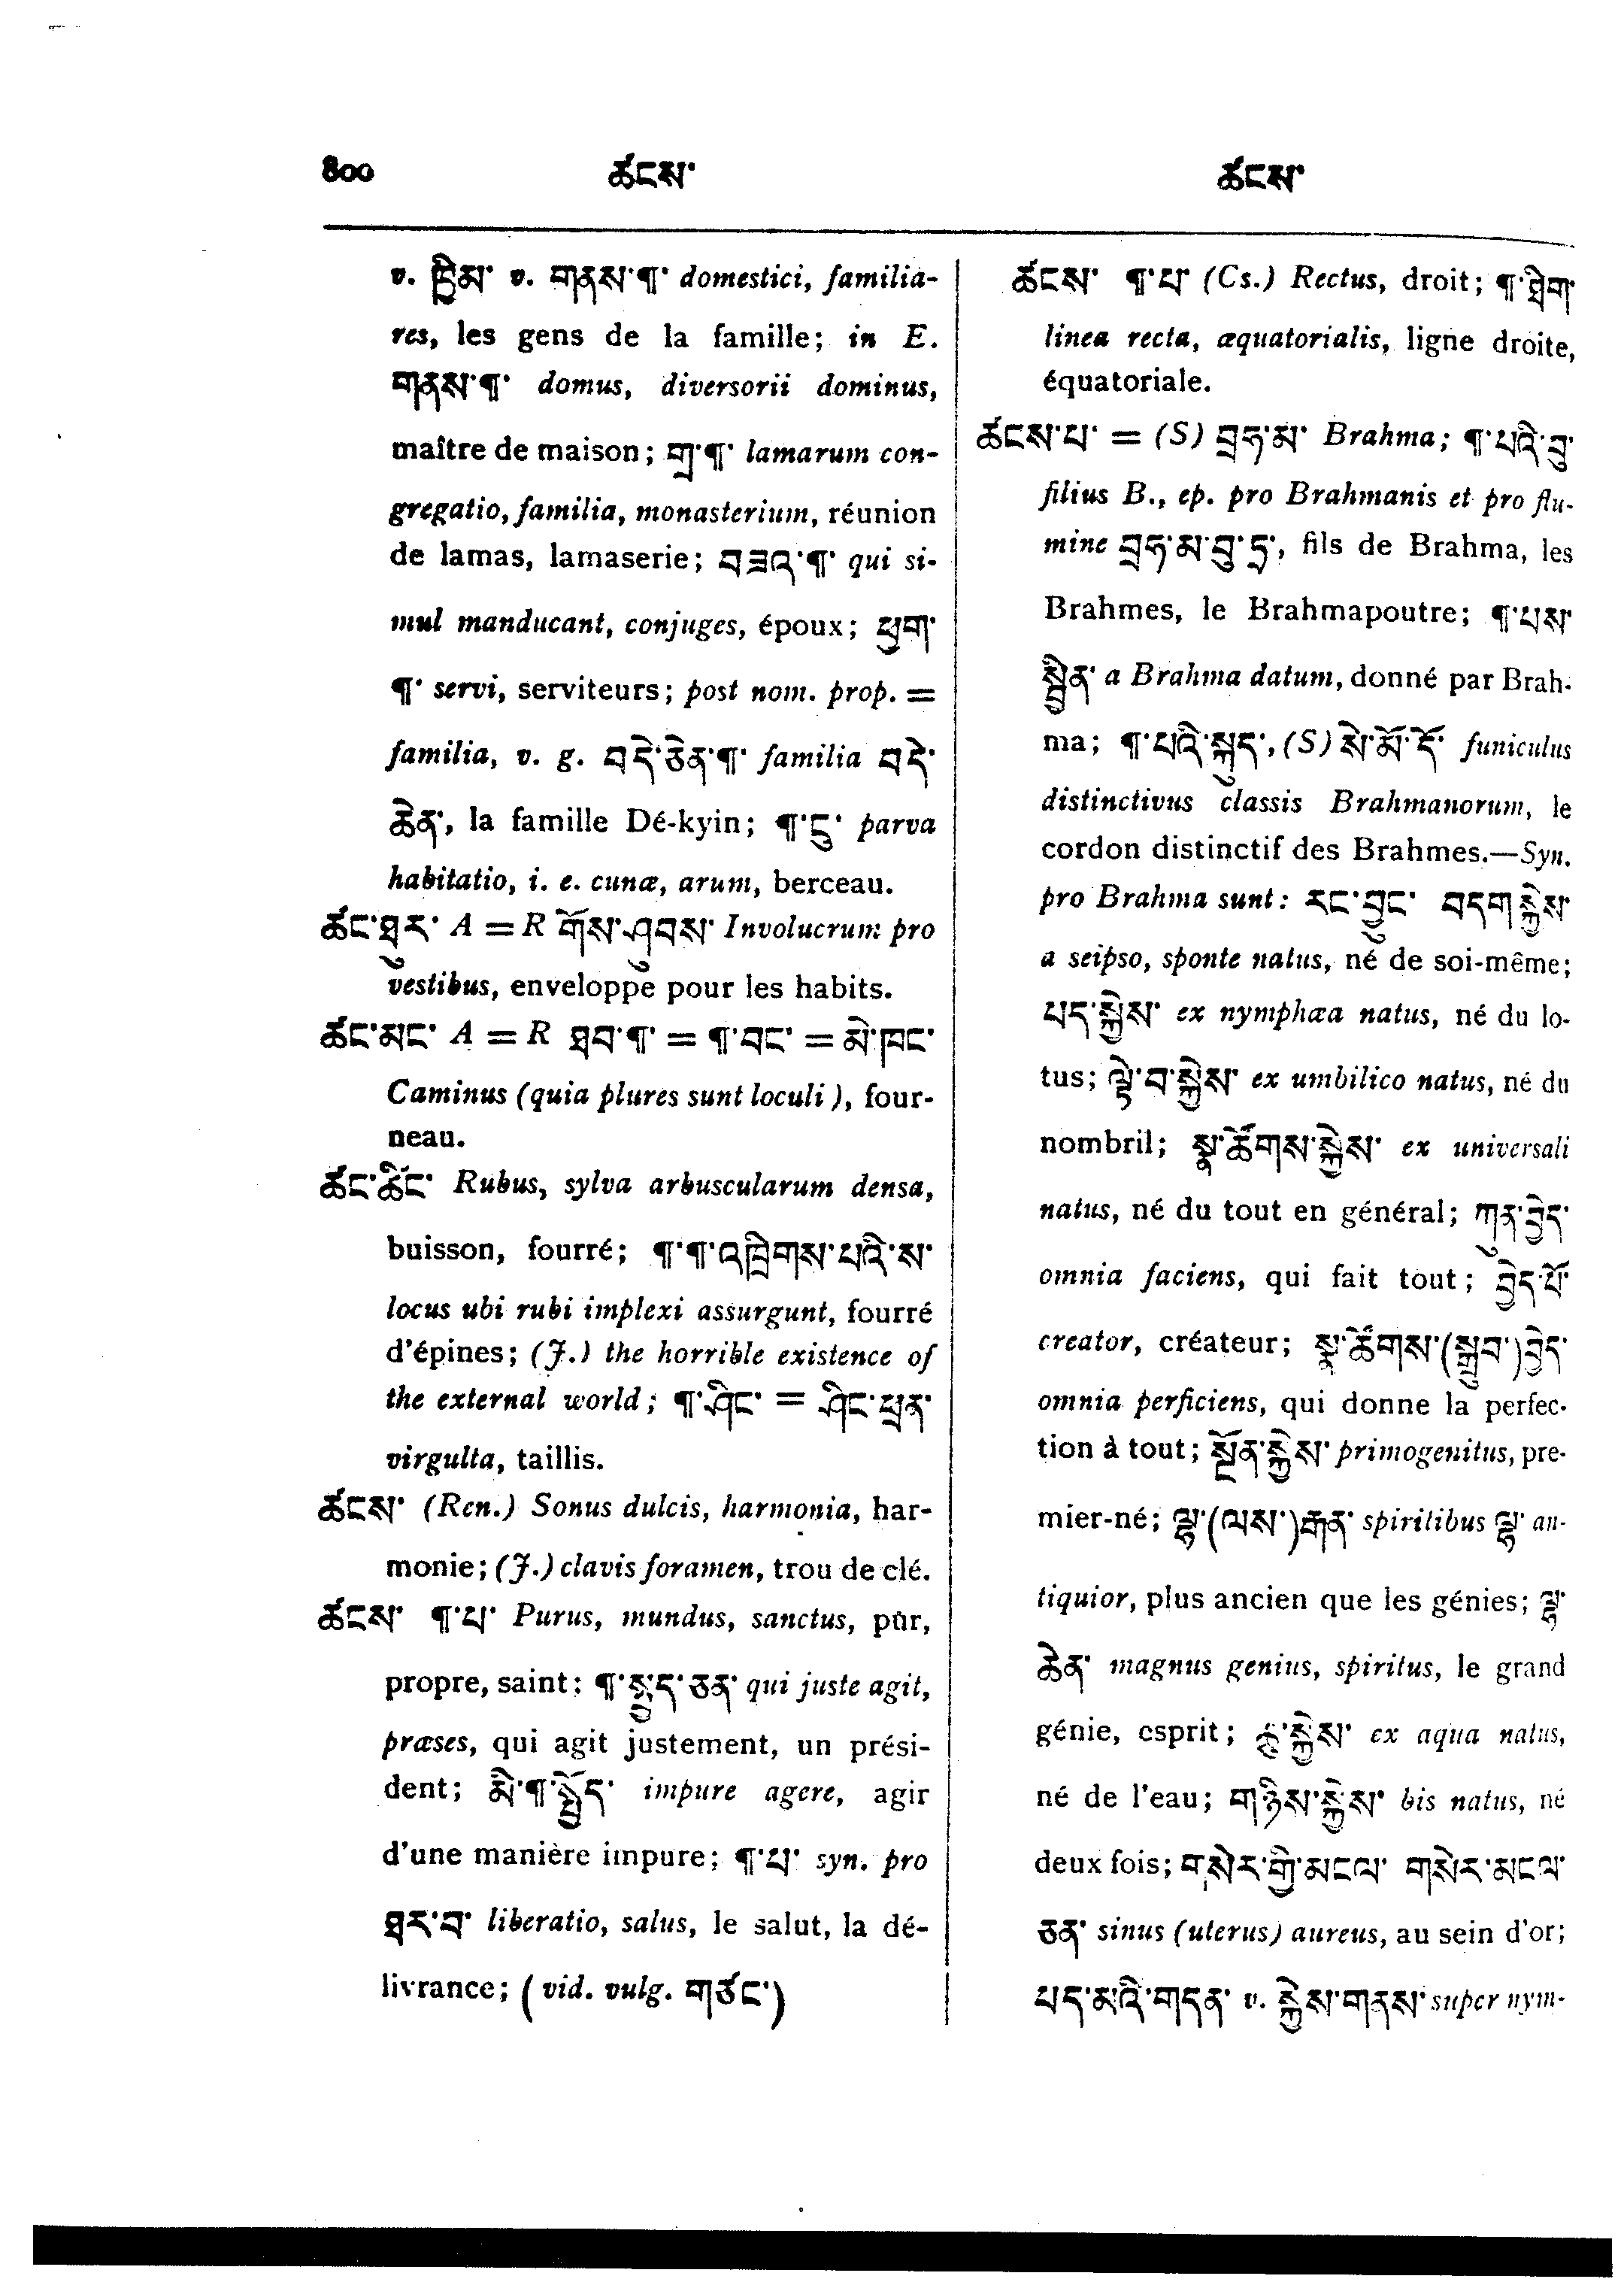 800 ཚངས་ ཚངས་
v. ཁྱིམ་ v. གནས་¶་ domestici, familia-
res, les gens de la famille; in E.
གནས་¶་ domus, diversorii dominus,
maître de maison; གྲྭ་¶་ lamarum con-
gregatio, familia, monasterium, réunion
de lamas, lamaserie; བཟའ་¶་ qui si-
mul manducant, conjuges, époux; ཕྱག་
¶་ servi, serviteurs; post nom. prop. =
familia, v. g. བདེ་ཅེན་¶་ familia བདེ་
ཆེན་, la famille Dé-kyin; ¶་ངུ་ parva
habitatio, i. e. cunæ, arum, berceau.
ཚང་ཐུར་ A = R གོས་ཤུབས་ Involucrum pro
vestibus, enveloppe pour les habits.
ཚང་མང་ A = R ཐབ་¶་ = ¶་བང་ = མེ་ཁང་
Caminus (quia plures sunt loculi), four-
neau.
ཚང་ཚིང་ Rubus, sylva arbuscularum densa,
buisson, fourré; ¶་¶་འཁྲིགས་པའི་ས་
locus ubi rubi implexi assurgunt, fourré
d'épines; (J.) the horrible existence of
the external world; ¶་ཤིང་ = ཤིང་ཕྲན་
virgulta, taillis.
ཚངས་ (Ren.) Sonus dulcis, harmonia, har-
monie; (J.) clavis foramen, trou de clé.
ཚངས་ ¶་པ་ Purus, mundus, sanctus, pur,
propre, saint; ¶་སྤྱད་ཅན་ qui juste agit,
præses, qui agit justement, un prési-
dent; མི་¶་སྤྱོད་ impure agere, agir
d'une manière impure; ¶་པ་ syn. pro
ཐར་བ་ liberatio, salus, le salut, la dé-
livrance; (vid. vulg. གཙང་)
ཚངས་ ¶་པ་ (Cs.) Rectus, droit; ¶་ཐིག་
linea recta, æquatorialis, ligne droite,
équatoriale.
ཚངས་པ་ = (S) བྲཧ་མ་ Brahma; ¶་པའི་བུ་
filius B., ep. pro Brahmanis et pro flu-
mine བྲཧ་མ་བུ་ཏྲ་, fils de Brahma, les
Brahmes, le Brahmapoutre; ¶་པས་
སྦྱིན་ a Brahma datum, donné par Brah-
ma; ¶་པའི་སྐུད་, (S) སེ་མོ་དོ་ funiculus
distinctivus classis Brahmanorum, le
cordon distinctif des Brahmes.—Syn.
pro Brahma sunt: རང་བྱུང་ བདག་སྐྱེས་
a seipso, sponte natus, né de soi-même;
པད་སྐྱེས་ ex nymphæa natus, né du lo-
tus; ལྟེ་བ་སྐྱེས་ ex umbilico natus, né du
nombril; སྣ་ཚོགས་སྐྱེས་ ex universali
natus, né du tout en général; ཀུན་བྱེད་
omnia faciens, qui fait tout; བྱེད་པོ་
creator, créateur; སྣ་ཚོགས་(སྒྲུབ་)བྱེད་
omnia perficiens, qui donne la perfec-
tion à tout; སྔོན་སྐྱེས་ primogenitus, pre-
mier-né; ལྷ་(ལས་)རྒན་ spiritibus ལྷ་ an-
tiquior, plus ancien que les génies; ལྷ་
ཆེན་ magnus genius, spiritus, le grand
génie, esprit; ཆུ་སྐྱེས་ ex aqua natus,
né de l'eau; གཉིས་སྐྱེས་ bis natus, né
deux fois; གསེར་གྱི་མངལ་ གསེར་མངལ་
ཅན་ sinus (uterus) aureus, au sein d'or;
པད་མའི་གདན་ v. སྐྱེས་གནས་ super nym-